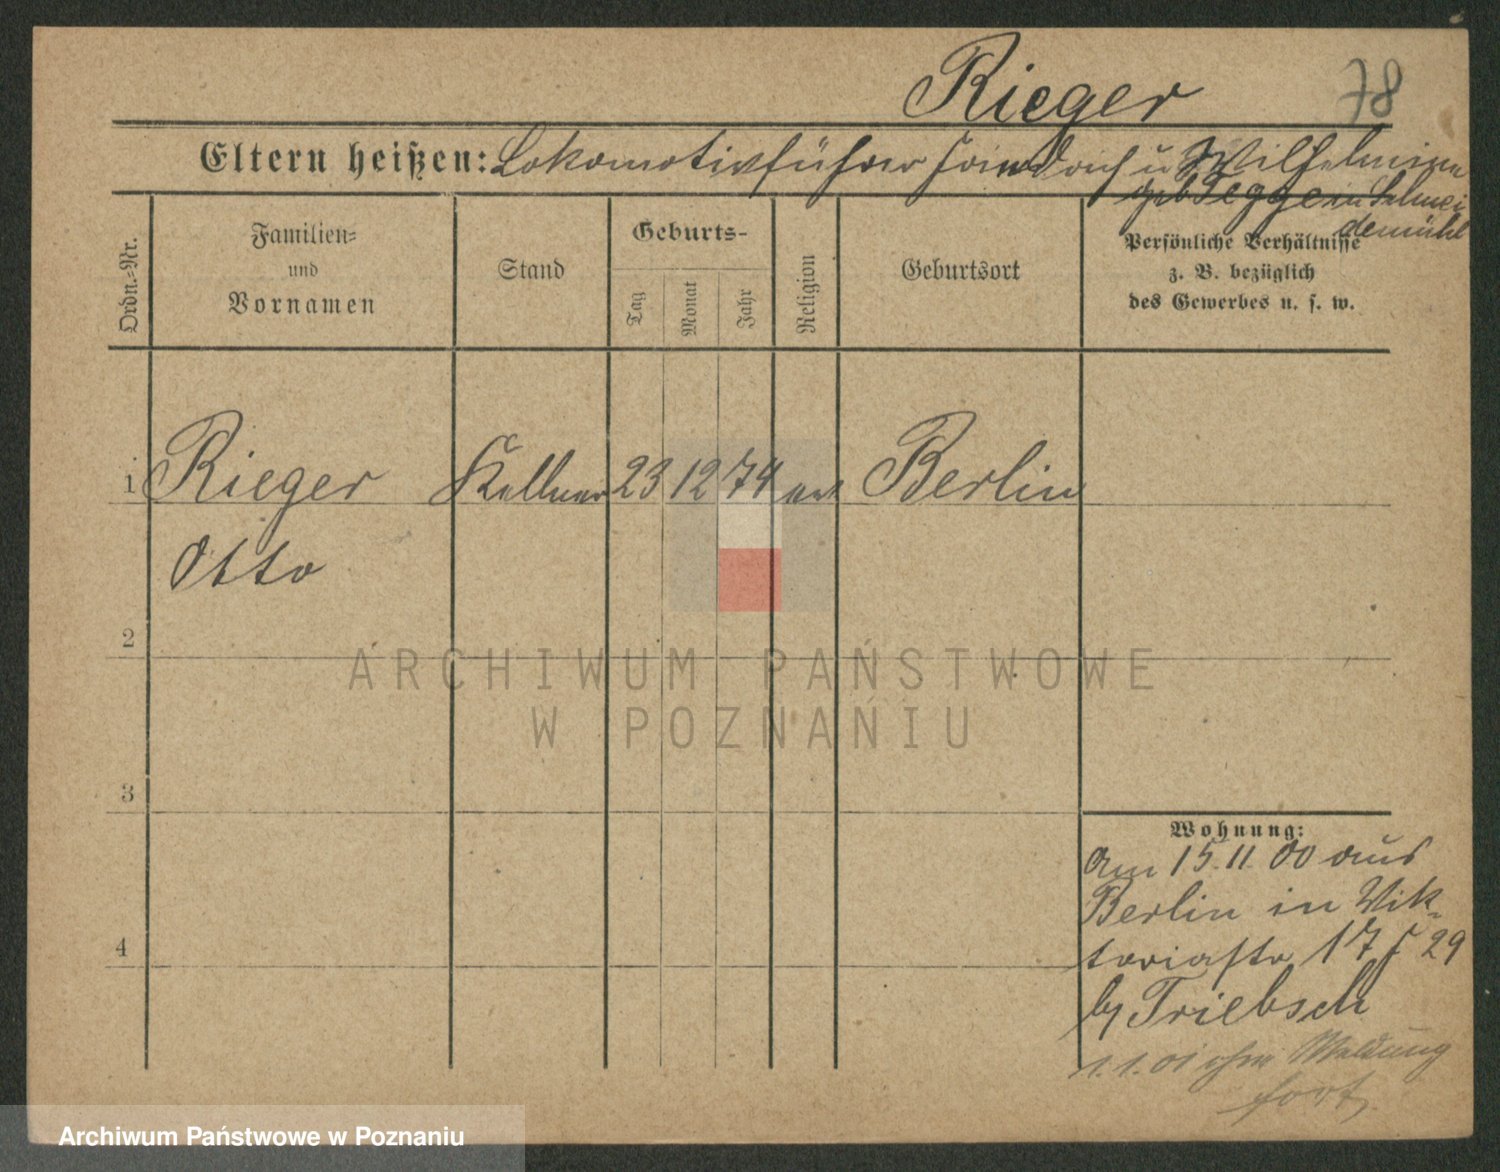 Rieger 78
Eltern heißen: Lokomotivführer Friedrich u Wilhelmine
geb Tegge in Schnei
demühl
Ordn.-Nr.
Familien-
und
Vornamen
Stand
Geburts-
Tag
Monat
Jahr
Religion
Geburtsort
Persönliche Verhältnisse
z. B. bezüglich
des Gewerbes u. s. w.
1 Rieger Kellner 23 12 74 ev Berlin
Otto
2
ARCHIWUM PAŃSTWOWE
W POZNANIU
3
Wohnung:
Am 15.11.00 aus
Berlin in Vik-
toriastr 17 29
4
by Triebsch
1.1.01 ohne Meldung
fort.
Archiwum Państwowe w Poznaniu